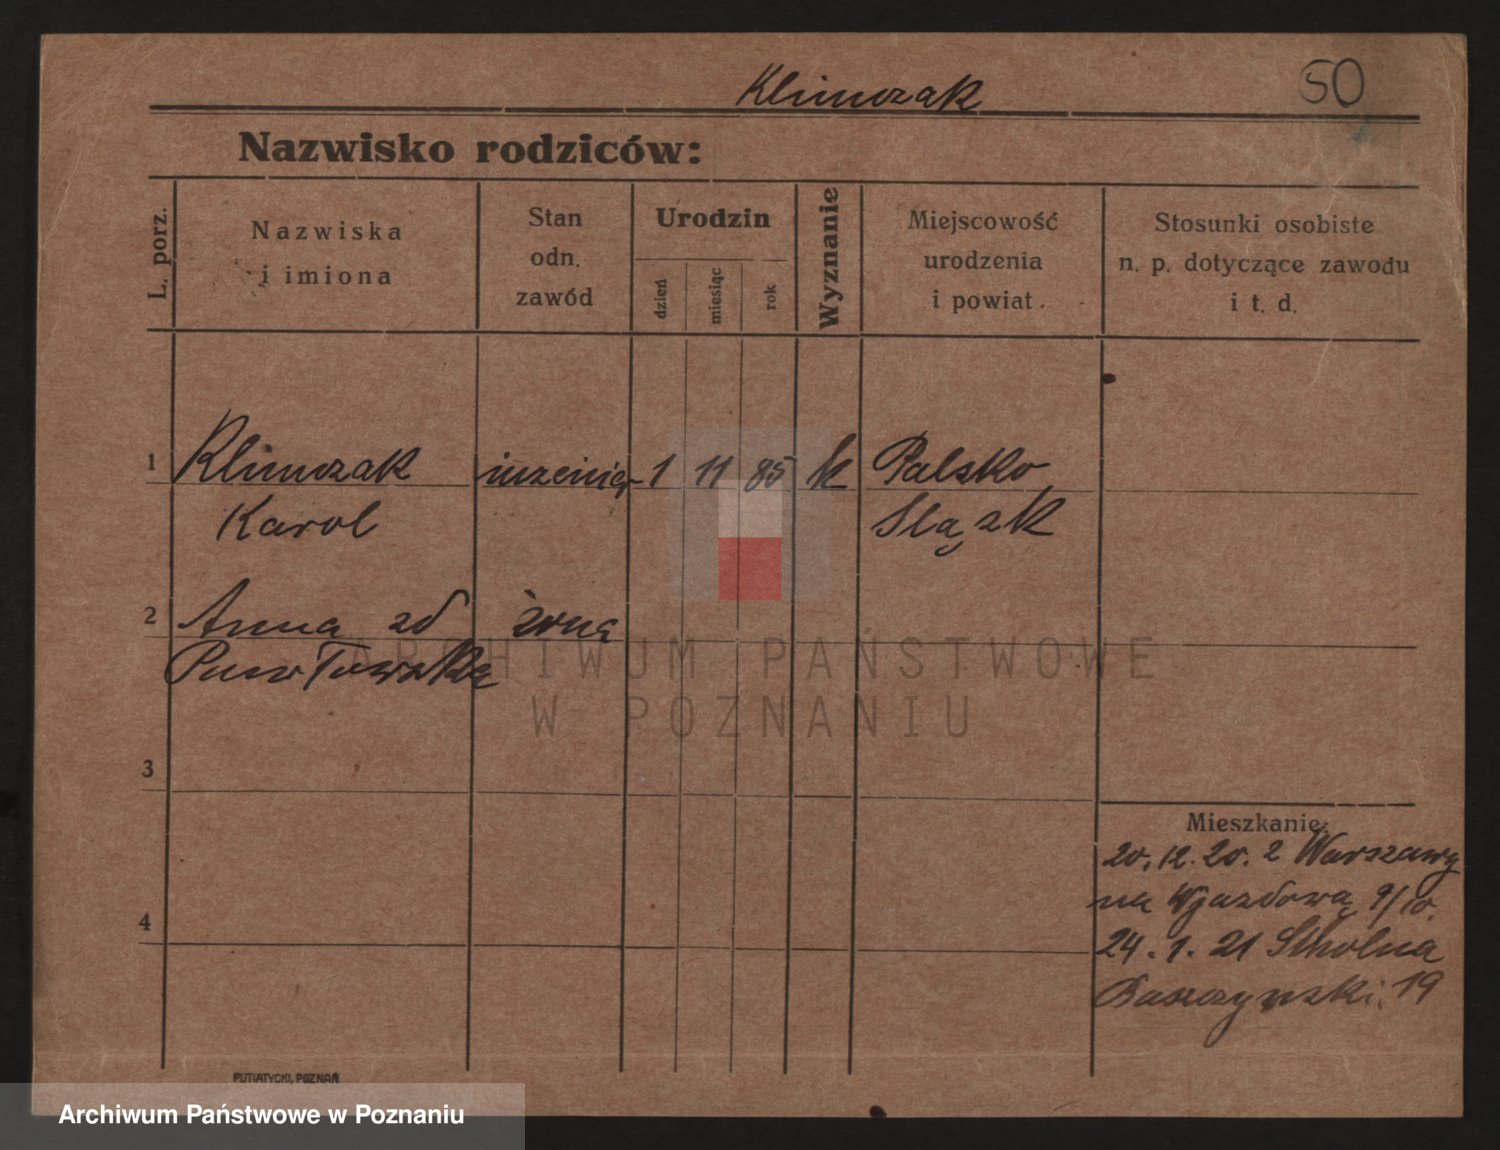 Klimczak
50
Nazwisko rodziców:
L. porz.
Nazwiska
i imiona
Stan
odn.
zawód
Urodzin
dzień
miesiąc
rok
Wyznanie
Miejscowość
urodzenia
i powiat
Stosunki osobiste
n. p. dotyczące zawodu
i t. d.
1 Klimczak inżenier 1 11 85 k Palsko
Karol Slązk
2 Anna zd żona
3
4
Mieszkanie:
20.12.20. z Warszawy
na Wjazdową 9/10.
24.1.21 Skolna
19
ARCHIWUM PAŃSTWOWE
W POZNANIU
PUTIATYCKI, POZNAŃ
Archiwum Państwowe w Poznaniu